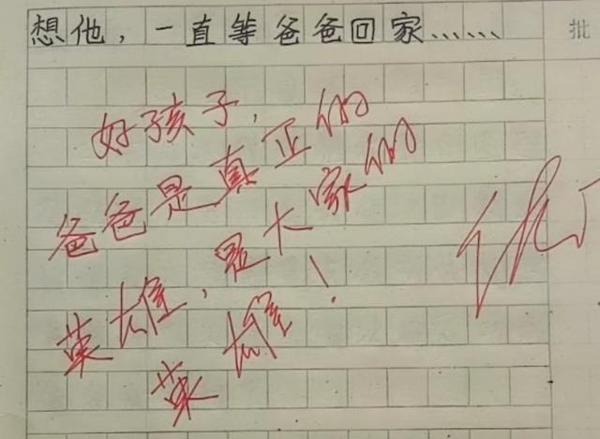 想他，一直等爸爸回家……
批
好孩子，
爸爸是真正的
英雄，是大家的
英雄！
优